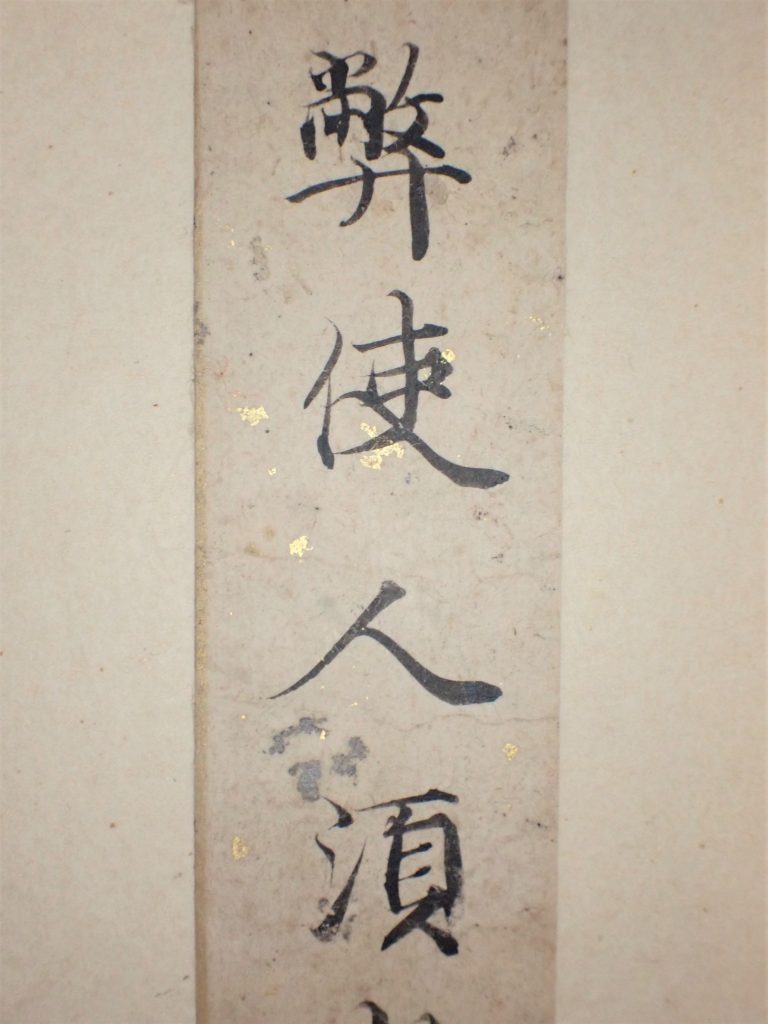 弊使人須